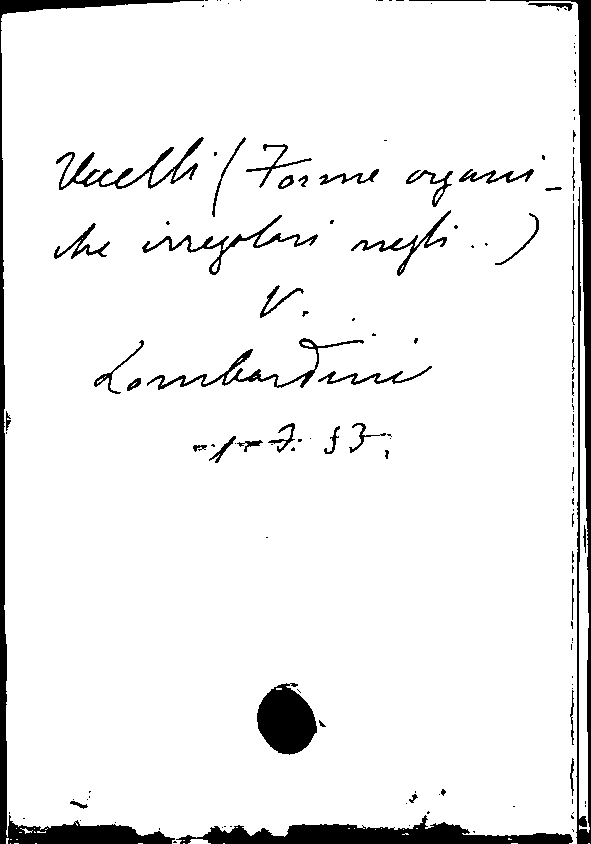 Uccelli (Forme organi-
che irregolari negli ..)
V.
Lombardini